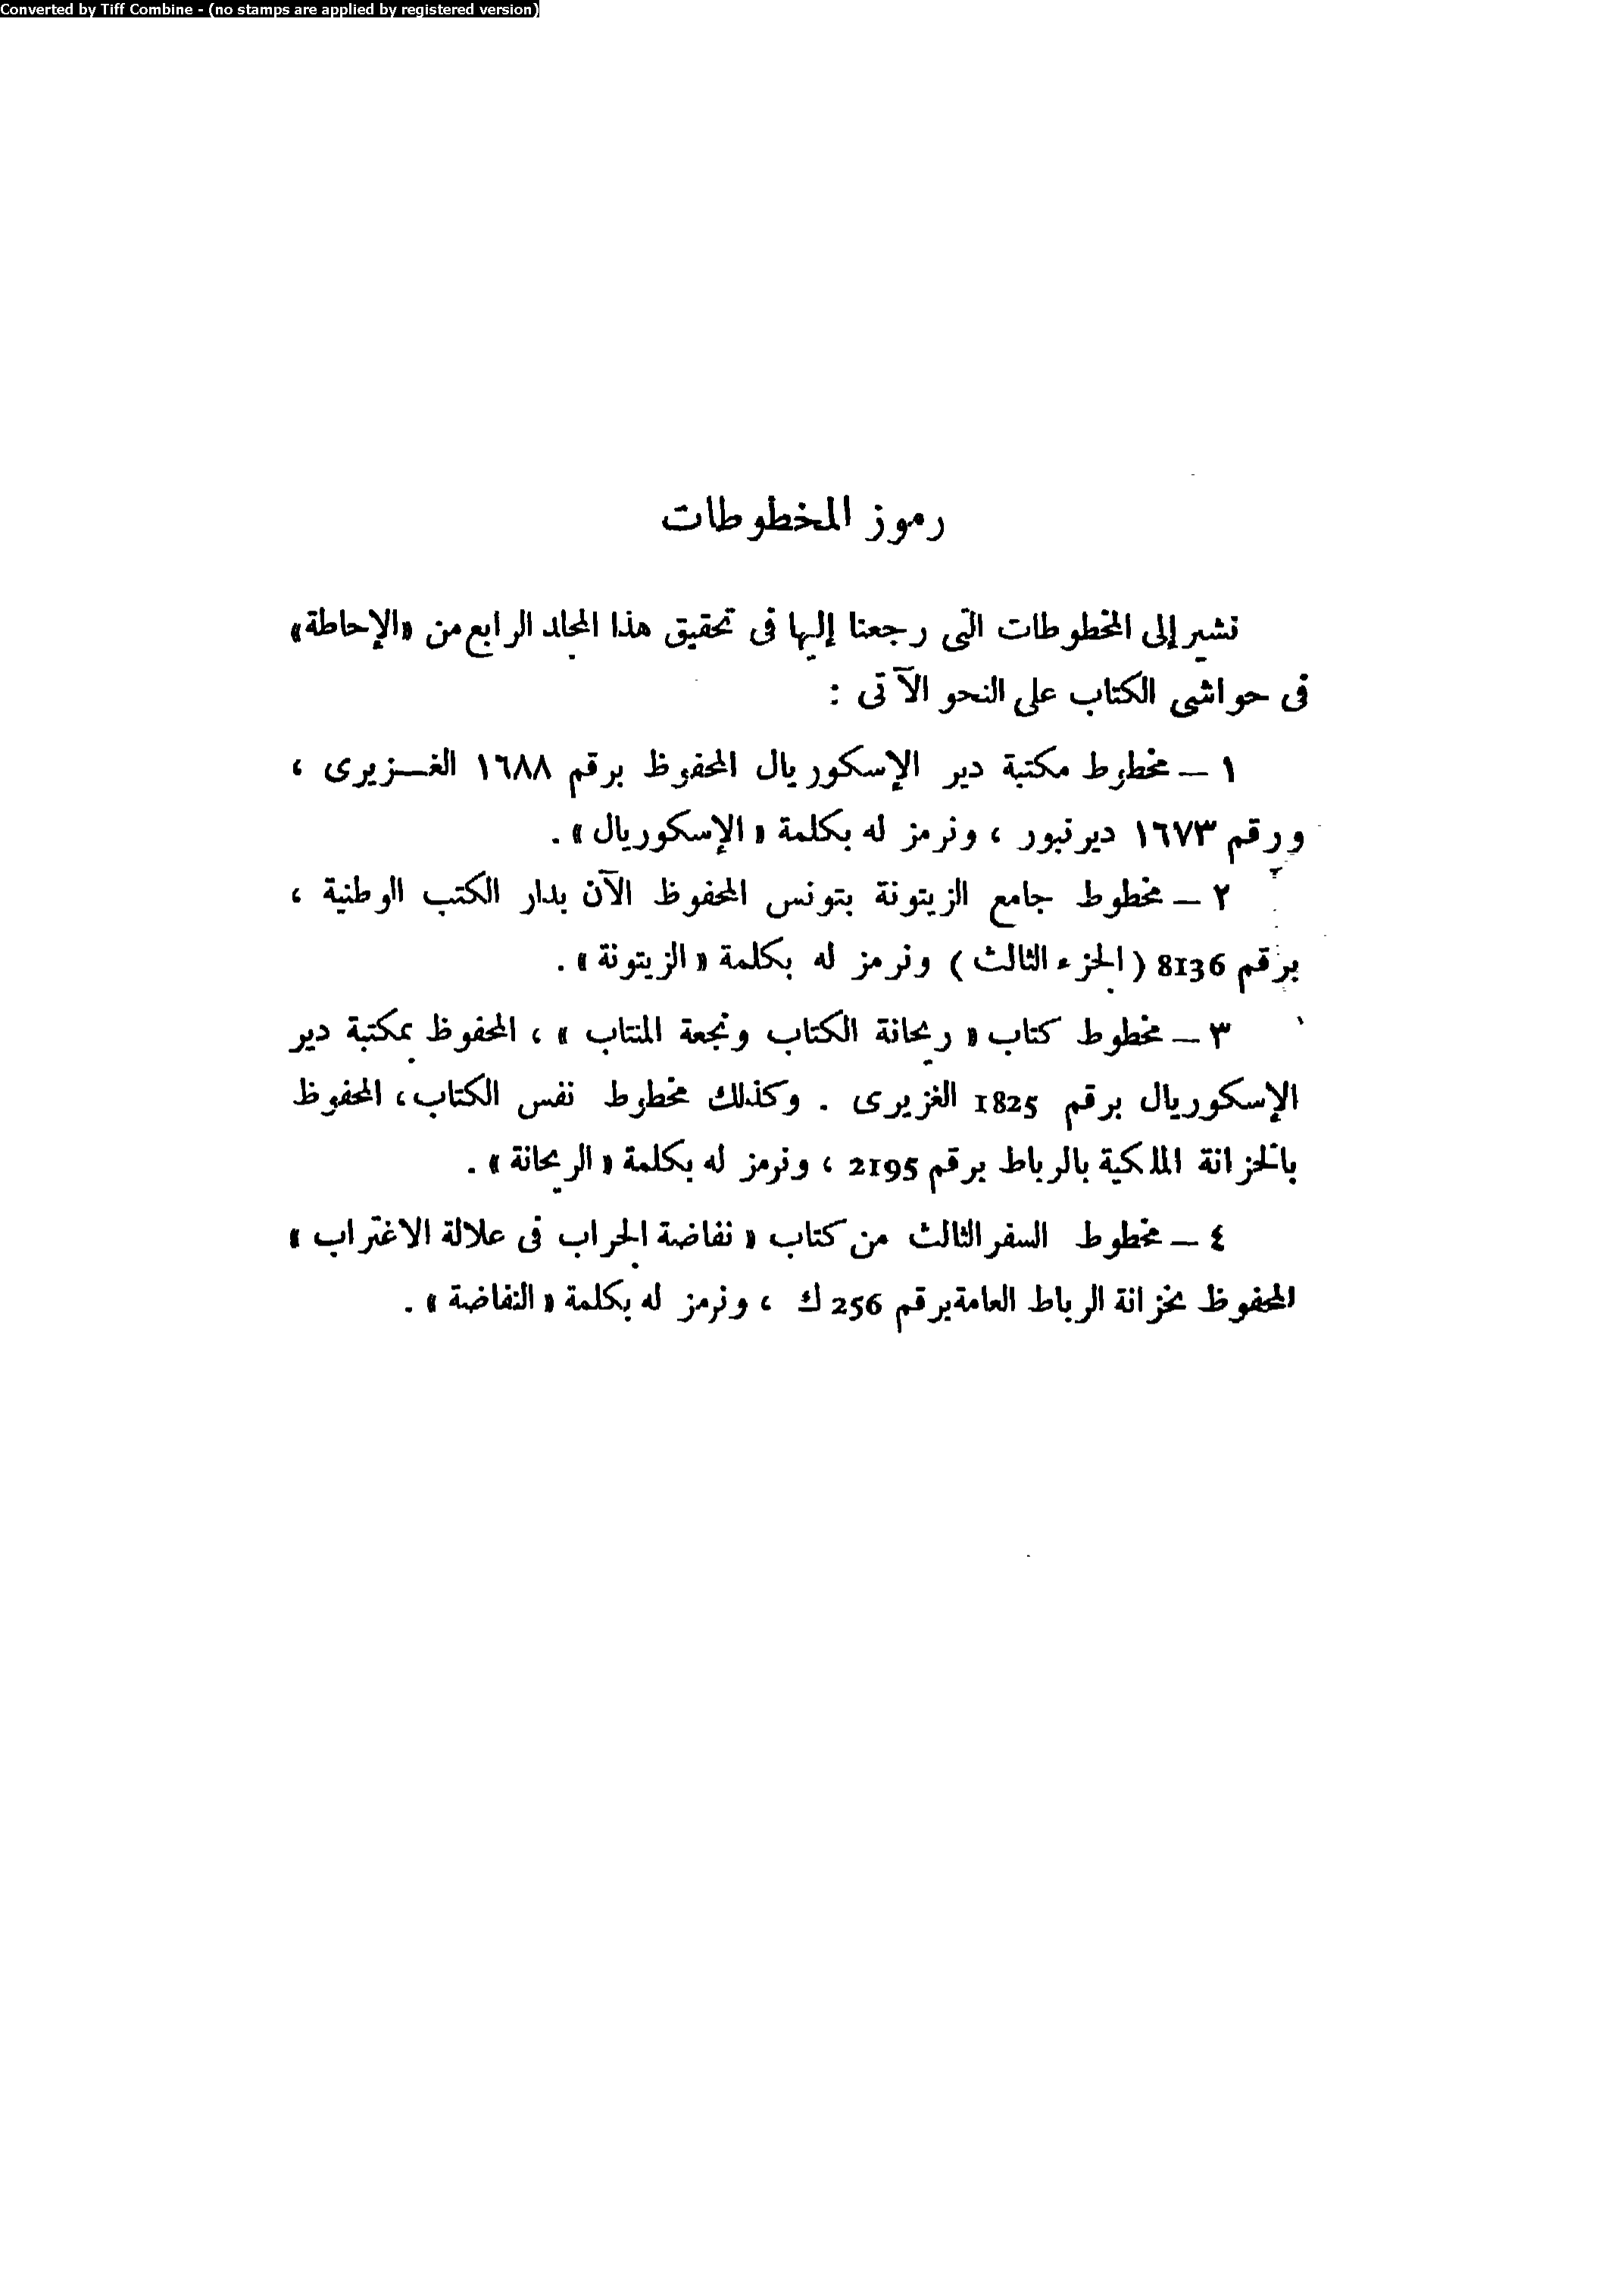 Converted by Tiff Combine - (no stamps are applied by registered version)
رموز المخطوطات
نشير إلى المخطوطات التى رجعنا إليها فى تحقيق هذا المجلد الرابع من «الإحاطة»
فى حواشى الكتاب على النحو الآتى :
١ – مخطوط مكتبة دير الإسكوريال المحفوظ برقم ١٦٨٨ الغـزيرى ،
ورقم ١٦٧٣ ديرنبور ، ونرمز له بكلمة « الإسكوريال » .
٢ – مخطوط جامع الزيتونة بتونس المحفوظ الآن بدار الكتب الوطنية ،
برقم 8136 ( الجزء الثالث ) ونرمز له بكلمة « الزيتونة » .
٣ – مخطوط كتاب « ريحانة الكتاب ونجعة المنتاب » ، المحفوظ بمكتبة دير
الإسكوريال برقم 1825 الغزيرى . وكذلك مخطوط نفس الكتاب ، المحفوظ
بالخزانة الملكية بالرباط برقم 2195 ، ونرمز له بكلمة « الريحانة » .
٤ – مخطوط السفر الثالث من كتاب « نفاضة الجراب فى علالة الاغتراب »
المحفوظ بخزانة الرباط العامة برقم 256 ك ، ونرمز له بكلمة « النفاضة » .